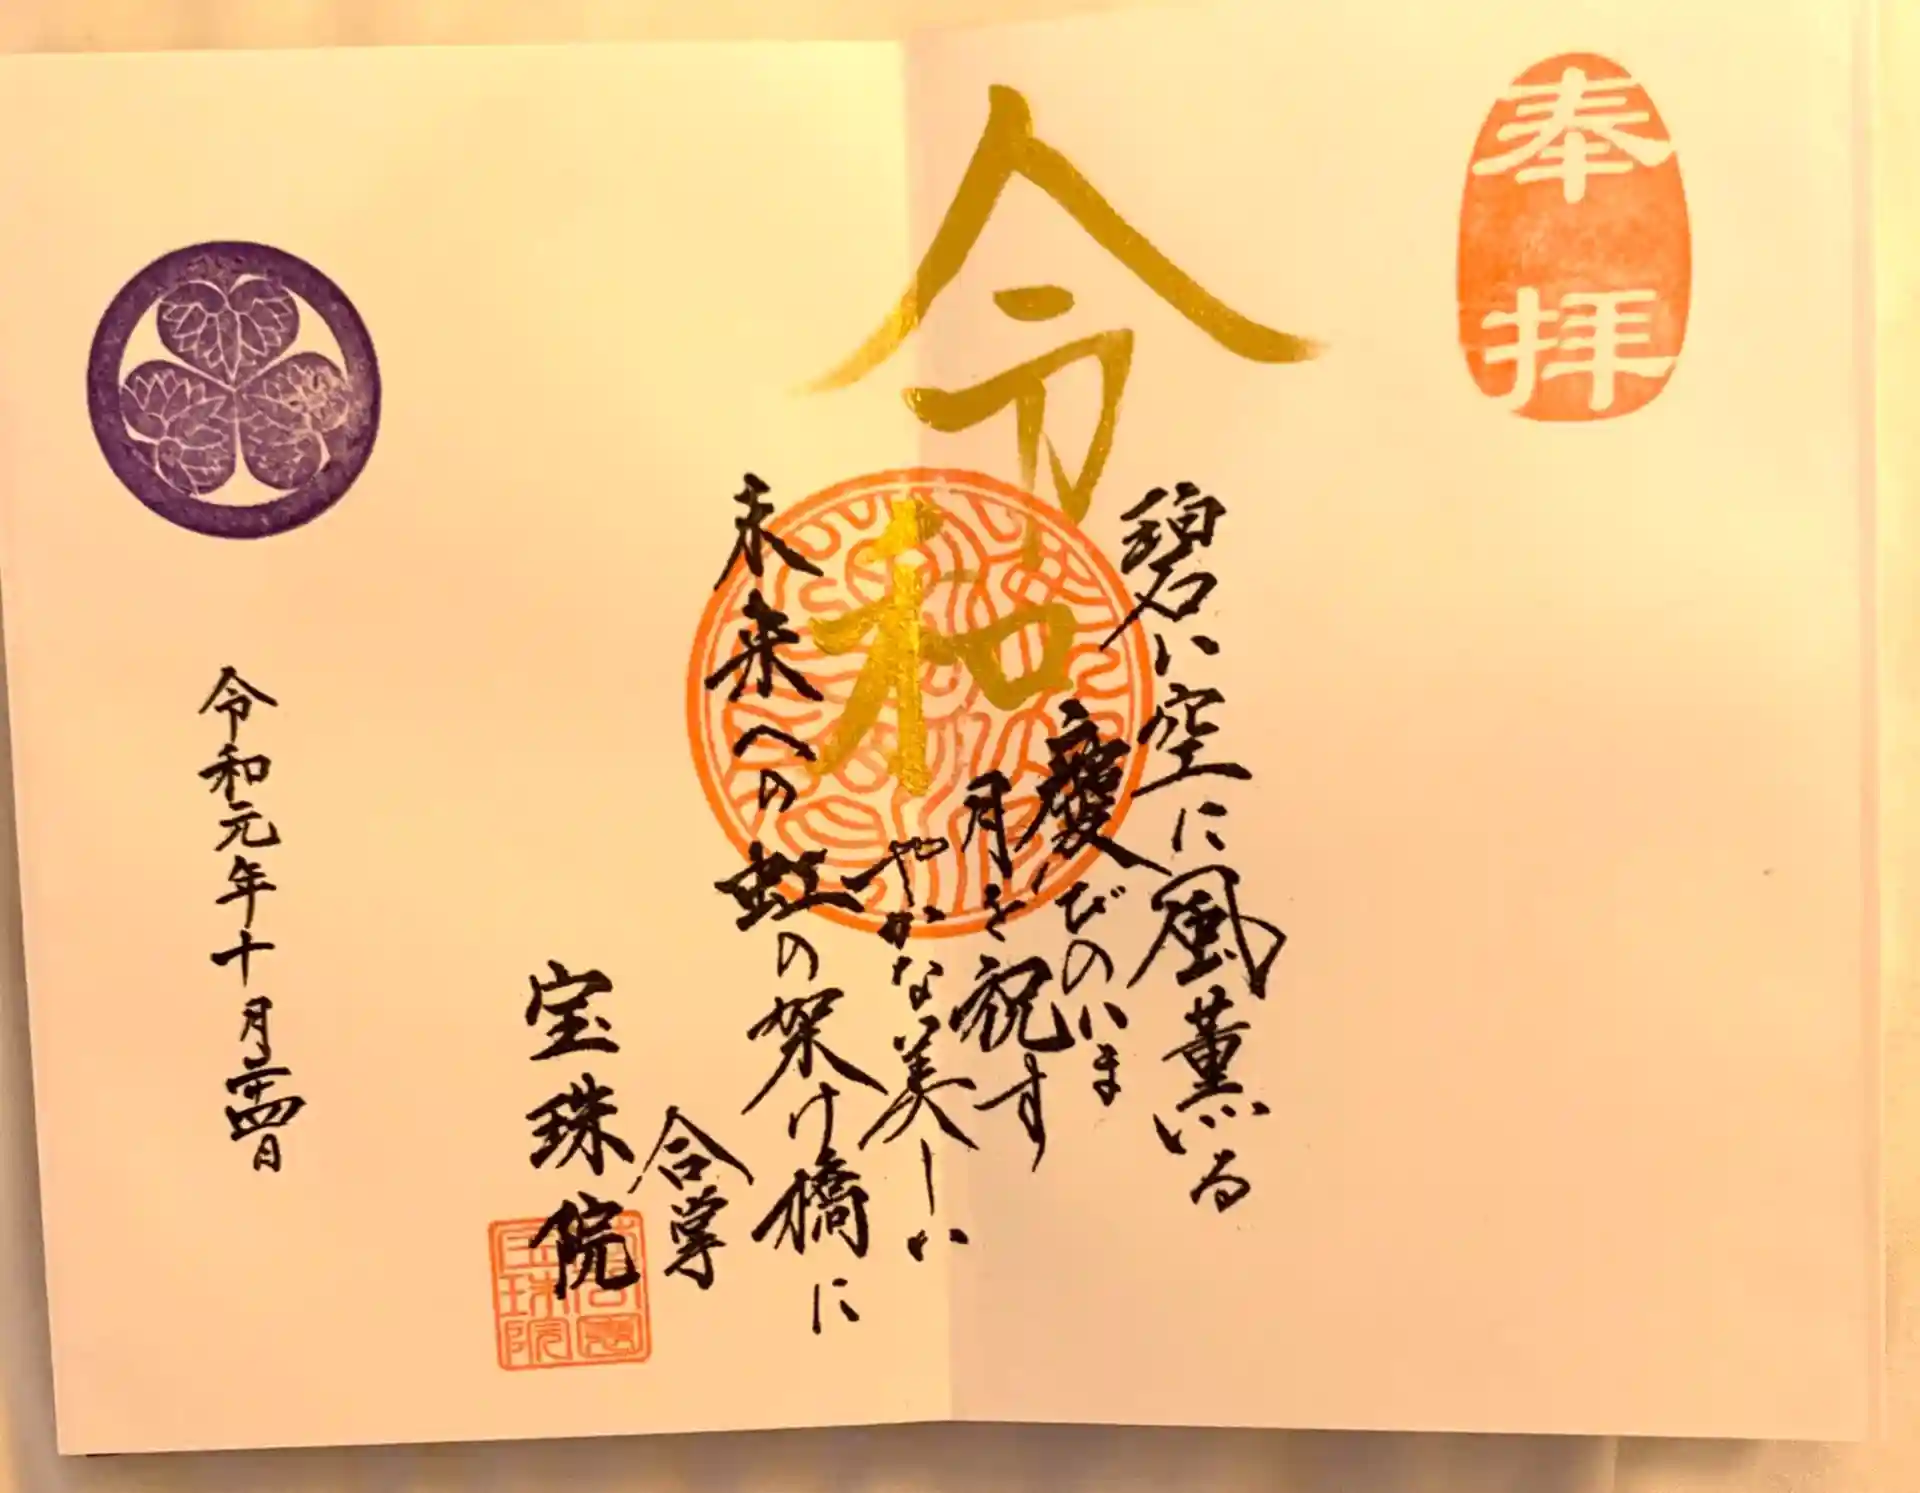 奉拝
令和
碧い空に風薫いる
慶びのいま
月を祝す
やかな美しい
未来への虹の架け橋に
合掌
宝珠院
令和元年十月二十四日